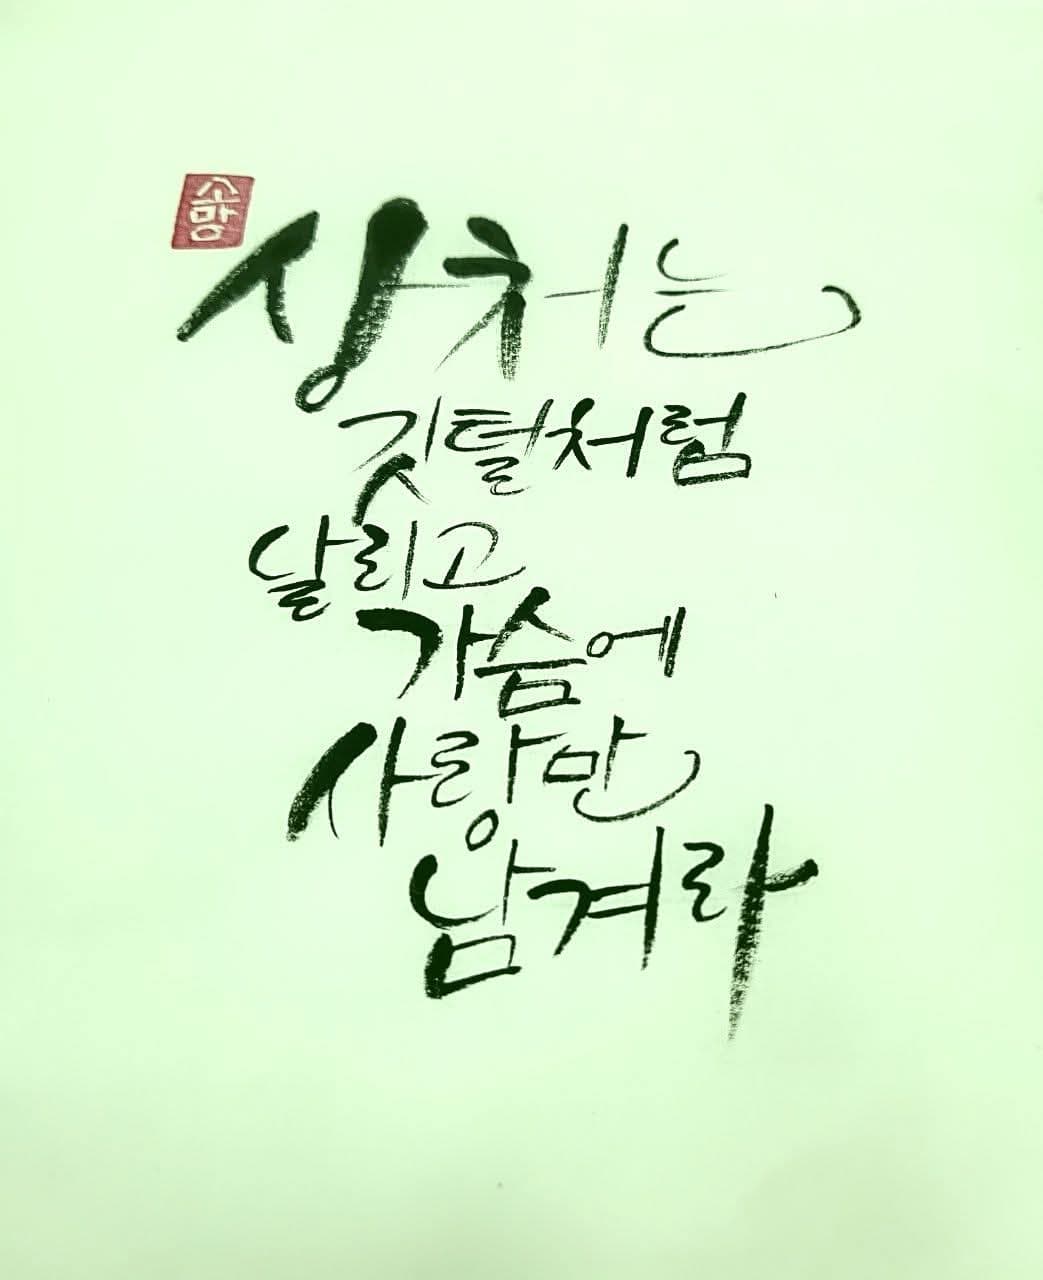 소망
상처는
깃털처럼
날리고
가슴에
사랑만
남겨라